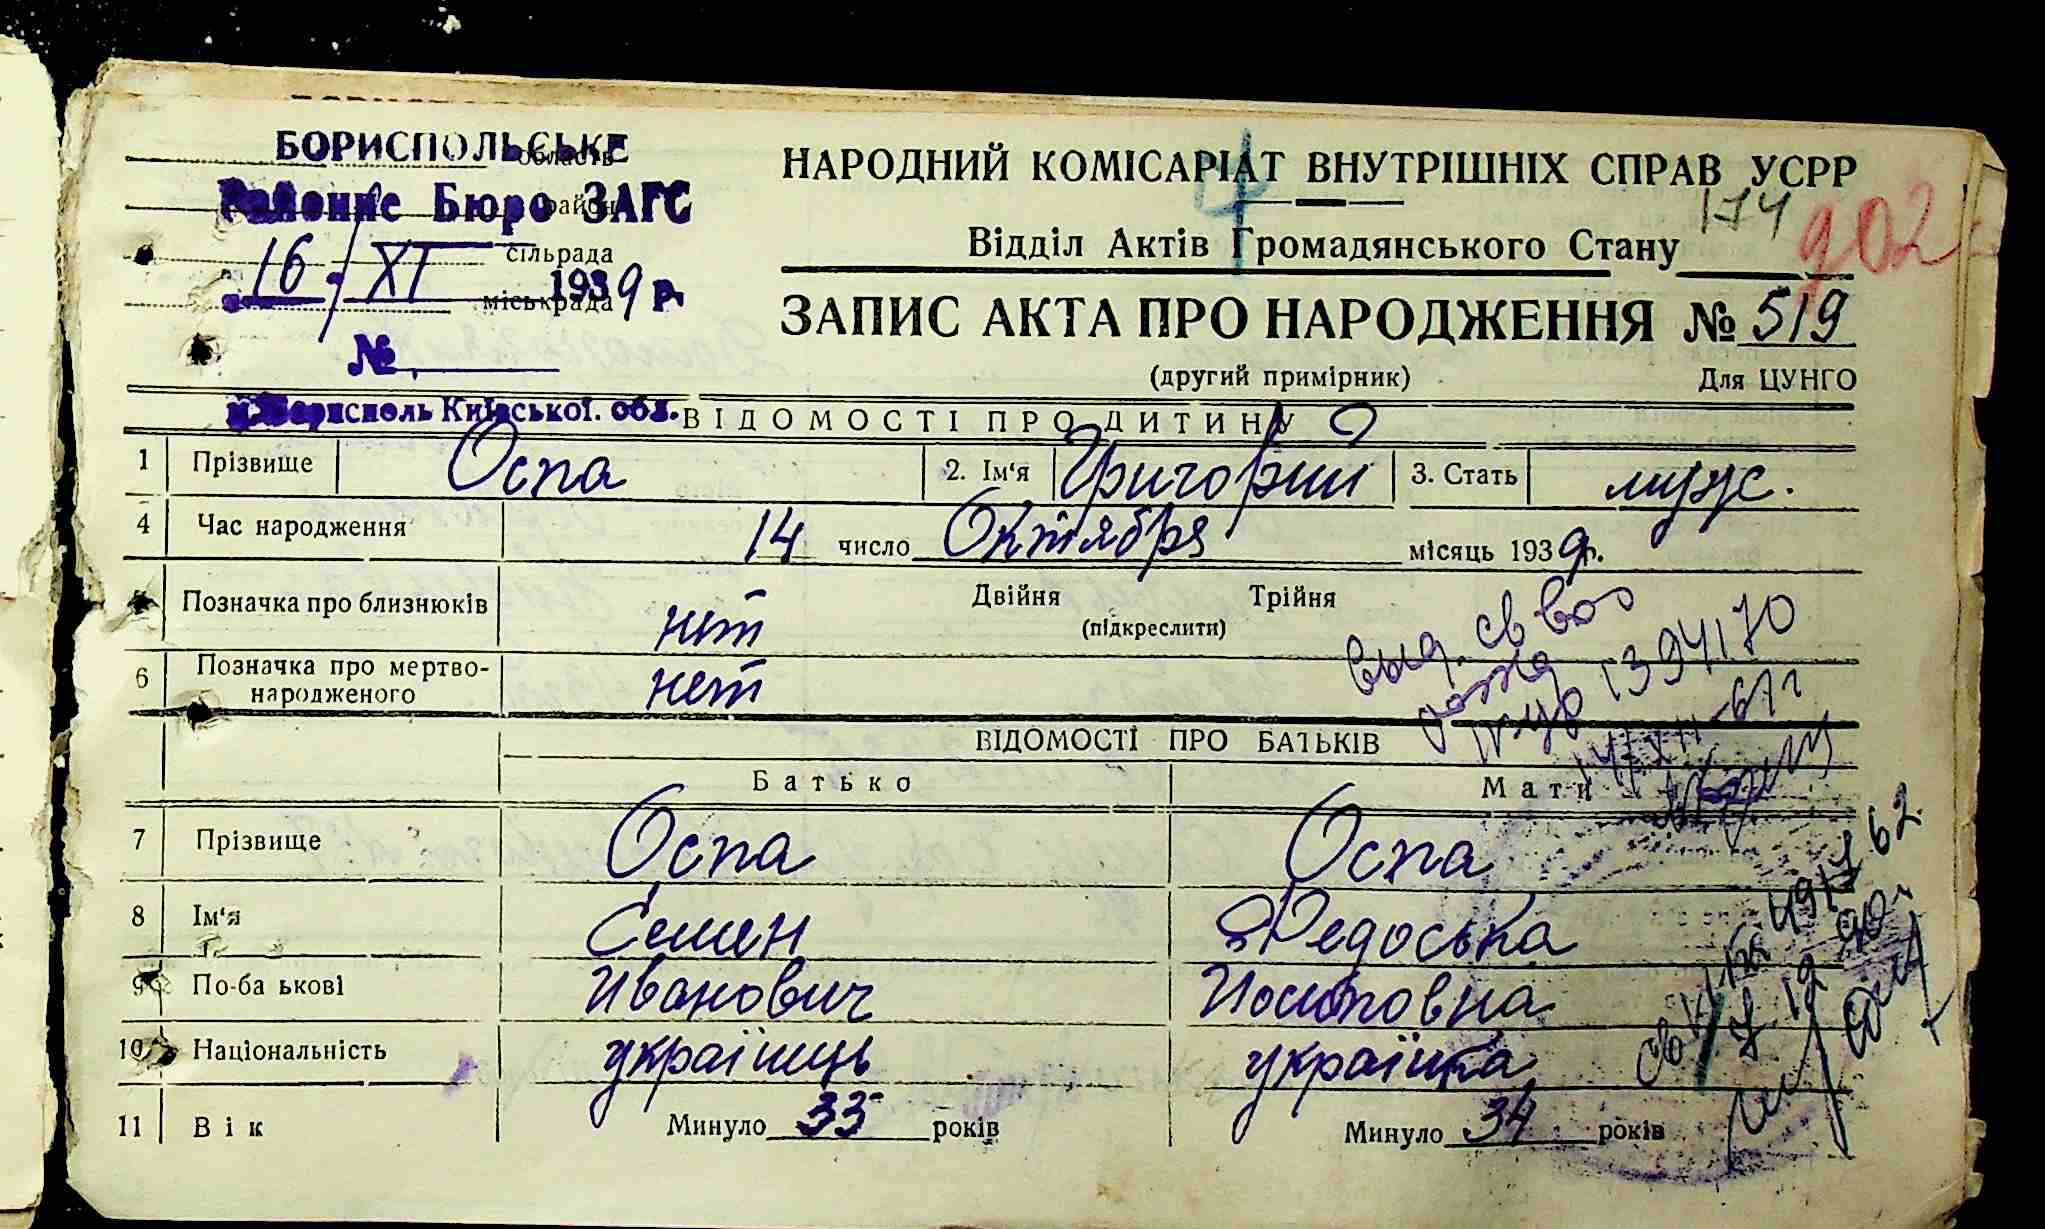 БОРИСПОЛЬСЬКЕ
область
Районне Бюро ЗАГС
район
сільрада
16/XI 1939 р.
міськрада
№
м. Бориспoль Київської. обл.
НАРОДНИЙ КОМІСАРІАТ ВНУТРІШНІХ СПРАВ УСРР
4
174
902
Відділ Актів Громадянського Стану
ЗАПИС АКТА ПРО НАРОДЖЕННЯ № 519
(другий примірник) Для ЦУНГО
ВІДОМОСТІ ПРО ДИТИНУ
1 Прізвище Оспа 2. Ім'я Григорий 3. Стать муж.
4 Час народження 14 число Октября місяць 1939 р.
5 Позначка про близнюків нет Двійня Трійня
(підкреслити)
6 Позначка про мертво-
народженого нет
выд. св во
1394170
ВІДОМОСТІ ПРО БАТЬКІВ
Батько Мати
7 Прізвище Оспа Оспа
8 Ім'я Семен Федоська
9 По-ба ькові Иванович Иосиповна
10 Національність українець українка
11 Вік Минуло 33 років Минуло 34 років